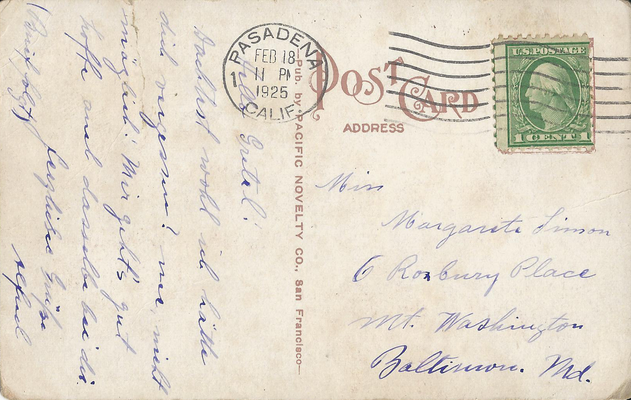 PASADENA
FEB 18
11 PM
1925
CALIF.
1
POST CARD
ADDRESS
U.S. POSTAGE
1 CENT 1
Pub. by PACIFIC NOVELTY CO., San Francisco
Liebe Gretel!
Dachtest wohl ich hätte
dich vergessen? nie, nicht
möglich! Mir geht's gut
hoffe auch dasselbe bei dir.
(Brief folgt) Herzliche Grüße
Miss
Margarete Simson
6 Roxbury Place
Mt. Washington
Baltimore. Md.